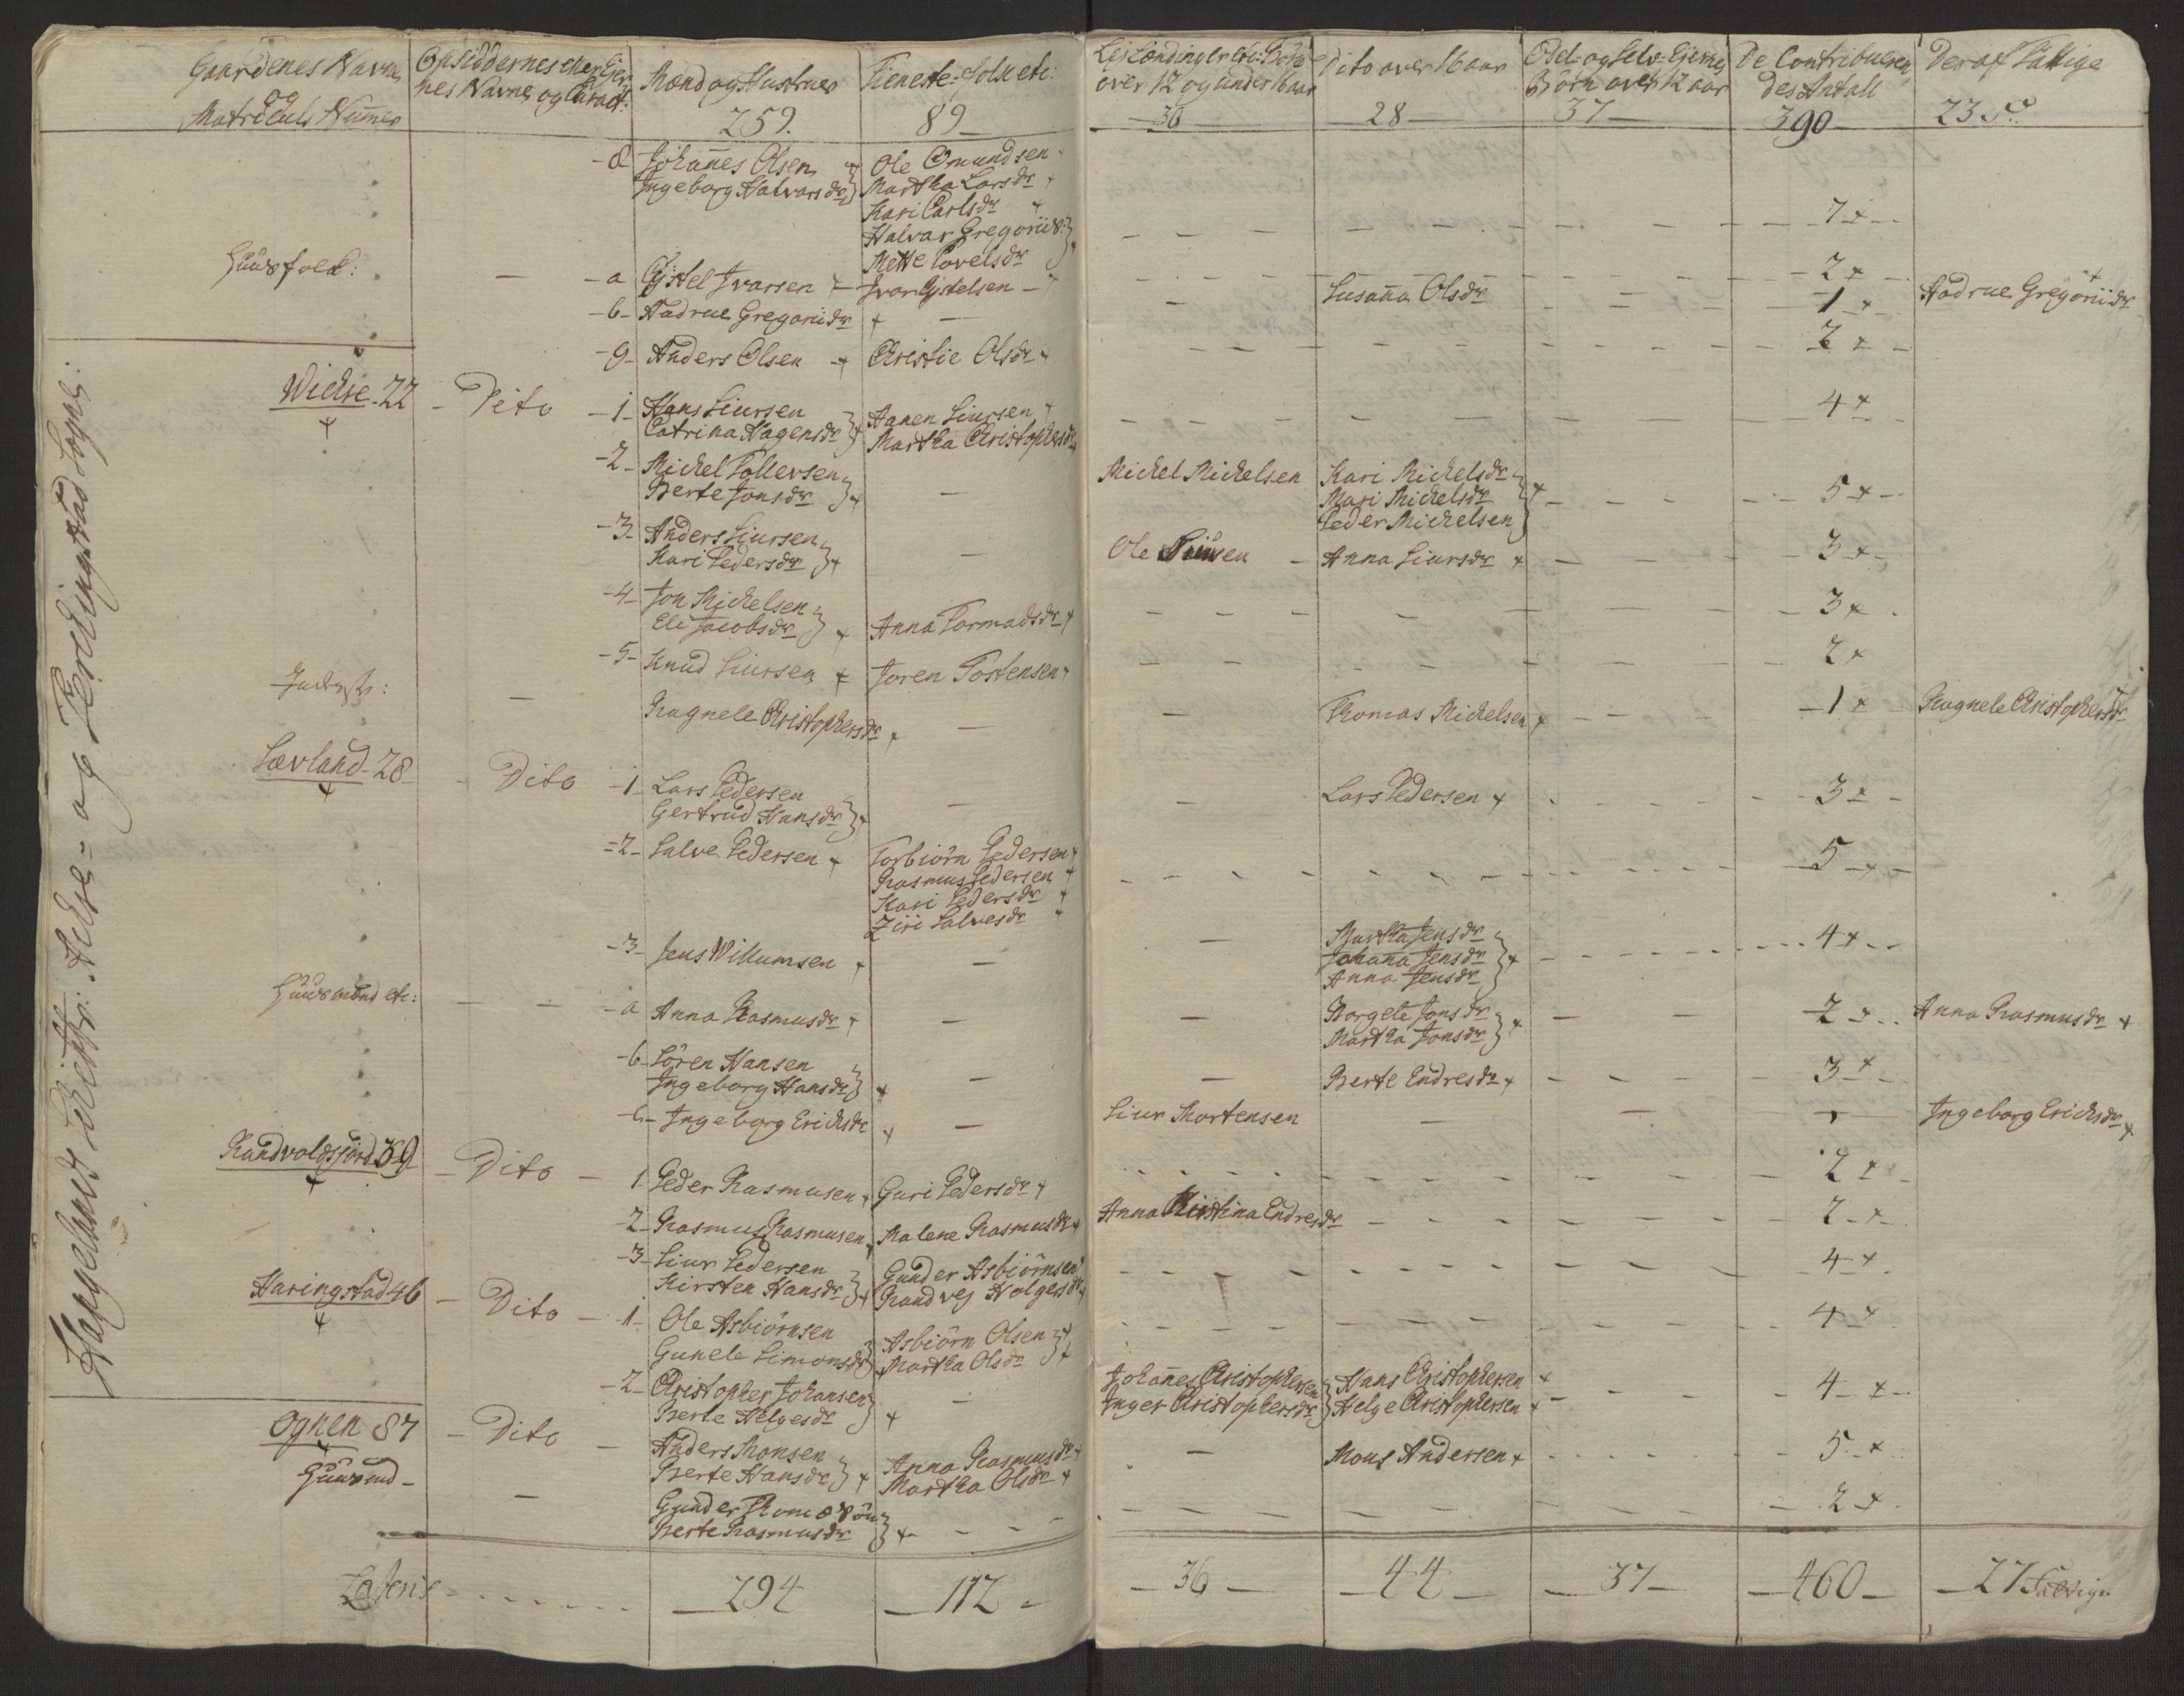 Gaardenes Navne
og
Matriculs Numer
Opsiddernes eller Ejer
nes Navne og Caract:
Mænd og Hustruer
259.
Tieneste-Folk etc:
89
over 12 og under 16 aar
30
Dito over 16 aar
28
Odel- og Selv-Ejernes
Börn over 12 aar
37
De Contribueren
des Antall
390
Deraf Fattige
23
Haagelands Schibr: Aadse- og Ferchingstad Sogne:
-8 Johannes Olsen
Ingeborg Halvorsdr
Ole Omundsen
Martha Larsdr
Kari Carlsdr
Halvor Gregorii S:
Mette Povelsdr
7
Huusfolk:
a Ejstel Ivarsen
Ivar Ejstelsen
2
-b- Aadrue Gregoriidr
Susanna Olsdr
1
Aadrue Gregoriidr
-9- Anders Olsen
Christie Olsdr
2
Wichse 22 - Dito - 1 - Hans Siursen
Catrina Hagensdr
Aanen Siursen
Martha Christophersdr
4
-2- Michel Tollevsen
Berte Jonsdr
Michel Michelsen
Kari Michelsdr
Mari Michelsdr
Peder Michelsen
5
-3- Anders Siursen
Kari Pedersdr
Ole Siursen
Anna Siursdr
3
-4- Jon Michelsen
Eli Jacobsdr
Anna Tormodsdr
3
-5- Knud Siursen
Joren Tostensen
2
Inderst:
Ragnele Christophersdr
Thomas Michelsen
1
Ragnele Christophersdr
Sævland - 28 - Dito - 1 - Lars Pedersen
Gertrud Hansdr
Lars Pedersen
3
-2- Salve Pedersen
Torbiörn Pedersen
Rasmus Pedersen
Kari Pedersdr
Ziri Salvesdr
5
-3- Jens Willumsen
Martha Jensdr
Johanna Jensdr
Anna Jensdr
4
Huusmænd etc:
a Anna Rasmusdr
Borgete Jonsdr
Martha Jonsdr
2
Anna Rasmusdr
-b- Sören Hansen
Ingeborg Hansdr
Berte Endresdr
3
-c- Ingeborg Erichsdr
Siur Mortensen
Ingeborg Erichsdr
Randvoldsjord 39 - Dito - 1 Peder Rasmusen
Guri Pedersdr
2
-2- Rasmus Rasmusen
Malene Rasmusdr
Anna Kirstina Endresdr
2
-3- Siur Pedersen
Kirsten Hansdr
Gunder Asbiörnsen
Randvej Holgersdr
4
Haringstad 46 - Dito - 1 - Ole Asbiörnsen
Gunele Simonsdr
Asbiörn Olsen
Martha Olsdr
4
-2- Christopher Johansen
Berte Helgesdr
Johannes Christophersen
Inger Christophersdr
Hans Christophersen
Helge Christophersen
4
Ognen 87 - Dito - Anders Monsen
Berte Hansdr
Anna Rasmusdr
Martha Olsdr
Mons Andersen
5
Huusmd -
Gunder
Berte Rasmusdr
2
Lateris
294
112
36
44
37
460
27 Fattige